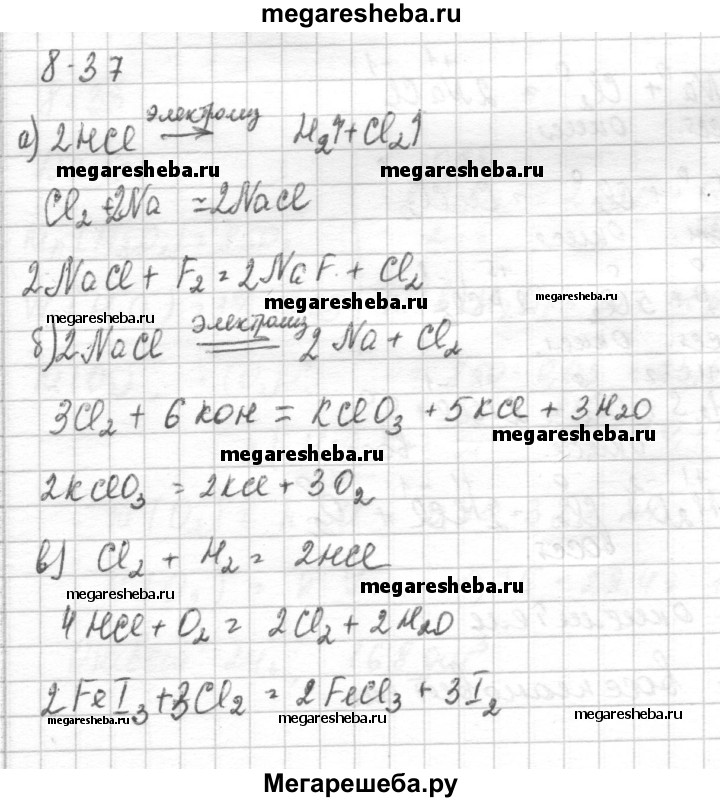 megaresheba.ru
8-37
а) 2HCl электролиз → H₂↑+Cl₂↑
megaresheba.ru megaresheba.ru
Cl₂+2Na =2NaCl
2NaCl + F₂ = 2NaF + Cl₂
megaresheba.ru megaresheba.ru megaresheba.ru
б) 2NaCl электролиз = 2Na + Cl₂
3Cl₂ + 6KOH = KClO₃ + 5KCl + 3H₂O
megaresheba.ru megaresheba.ru
2KClO₃ = 2KCl + 3O₂
в) Cl₂ + H₂ = 2HCl
megaresheba.ru megaresheba.ru
4HCl + O₂ = 2Cl₂ + 2H₂O
2FeI₃+3Cl₂ = 2FeCl₃ + 3I₂
megaresheba.ru megaresheba.ru megaresheba.ru
Мегарешеба.ру